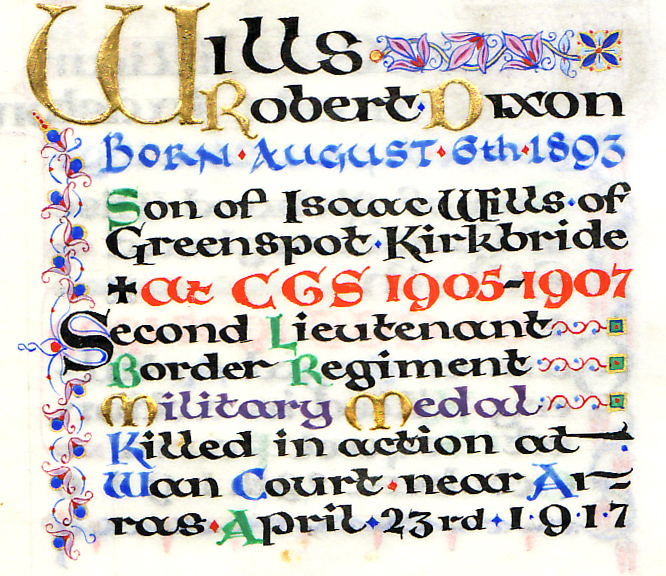 Wills
Robert · Dixon
Born · August · 6th · 1893
Son of Isaac Wills · of
Greenspot · Kirkbride
✚ at CGS 1905-1907
Second Lieutenant
Border Regiment
Military Medal
Killed in action at
Wan Court · near Ar-
ras · April · 23rd · 1·9·1·7